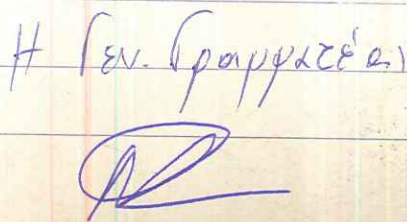 Η Γεν. Γραμματέας